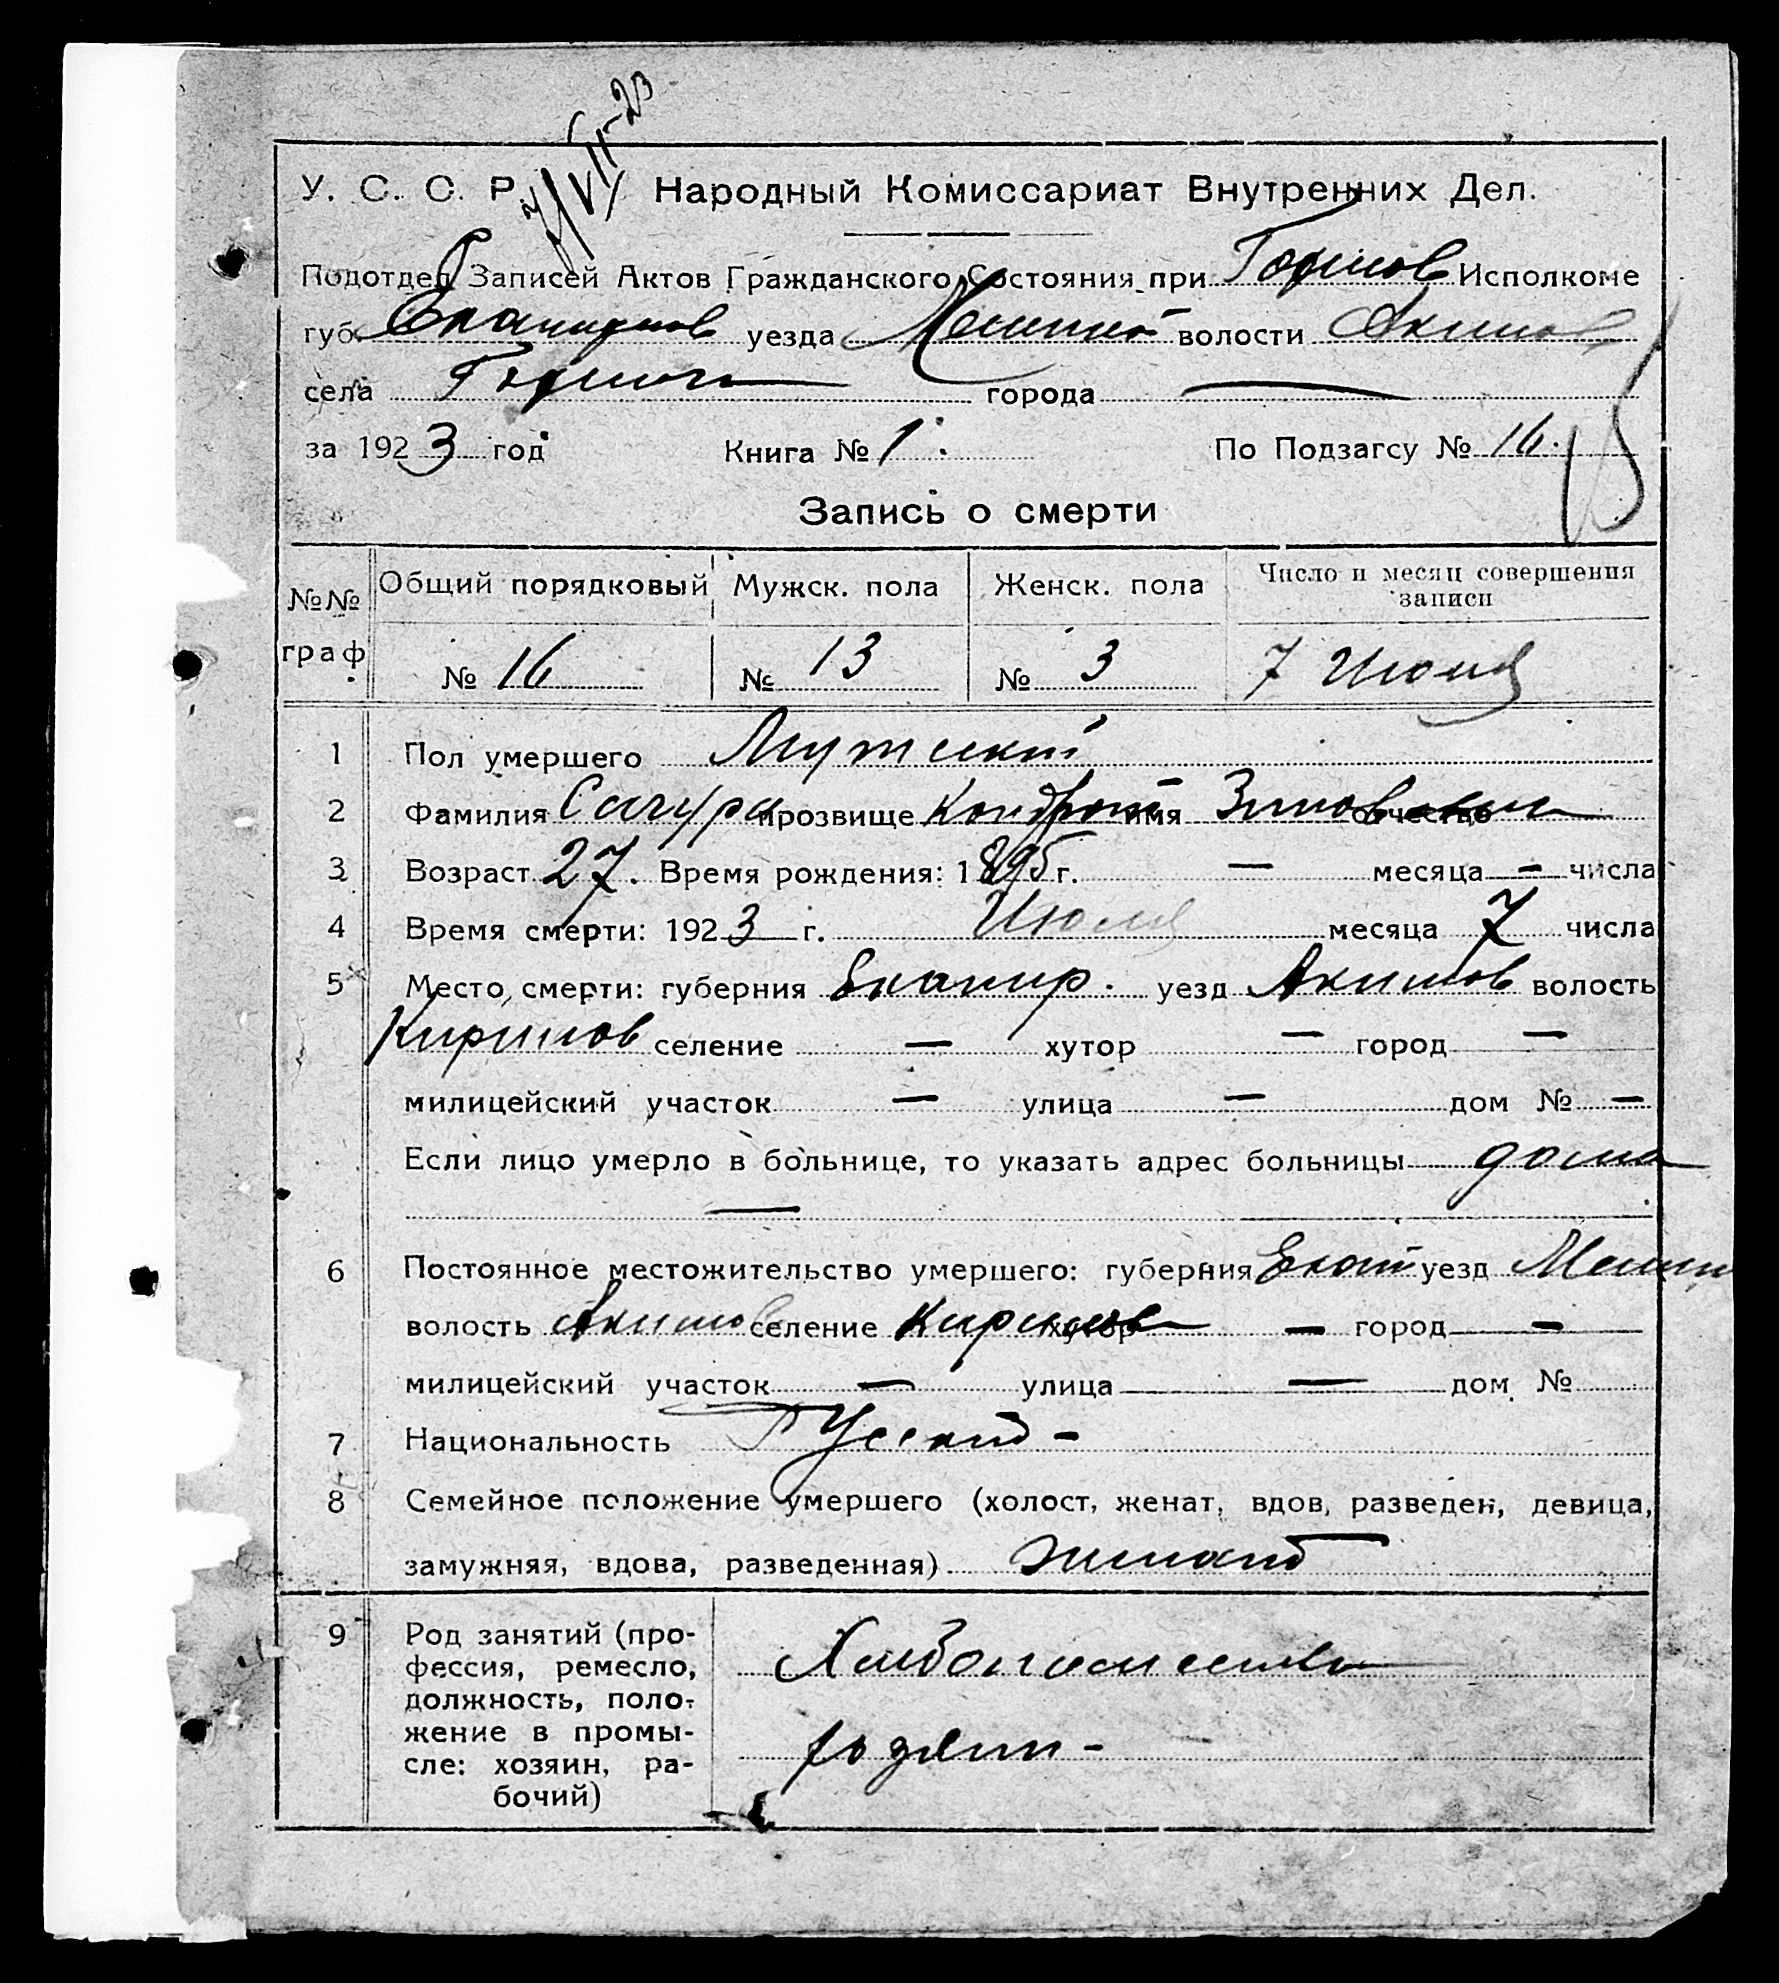 7/VII-23
У. С. С. Р. Народный Комиссариат Внутренних Дел.
Подотдел Записей Актов Гражданского Состояния при Исполкоме
губ. уезда волости Акимов
села города —
за 1923 год Книга № 1. По Подзагсу № 16.
Запись о смерти
№№ граф Общий порядковый Мужск. пола Женск. пола Число и месяц совершения записи
№ 16 № 13 № 3 7 Июля
1 Пол умершего Мужской
2 Фамилия Сачура прозвище Кондрат имя Зиновьевич отчество
3 Возраст 27. Время рождения: 1895 г. — месяца — числа
4 Время смерти: 1923 г. Июля месяца 7 числа
5 Место смерти: губерния Екатир. уезд Акимов волость
Кирилов селение — хутор — город —
милицейский участок — улица — дом № —
Если лицо умерло в больнице, то указать адрес больницы дома
—
6 Постоянное местожительство умершего: губерния Екат уезд Мелит
волость Акимов селение Кирилов хутор — город —
милицейский участок — улица — дом №
7 Национальность Русский -
8 Семейное положение умершего (холост, женат, вдов, разведен, девица,
замужняя, вдова, разведенная) женат
9 Род занятий (про-
фессия, ремесло,
должность, поло-
жение в промы-
сле: хозяин, ра-
бочий)
хозяин -